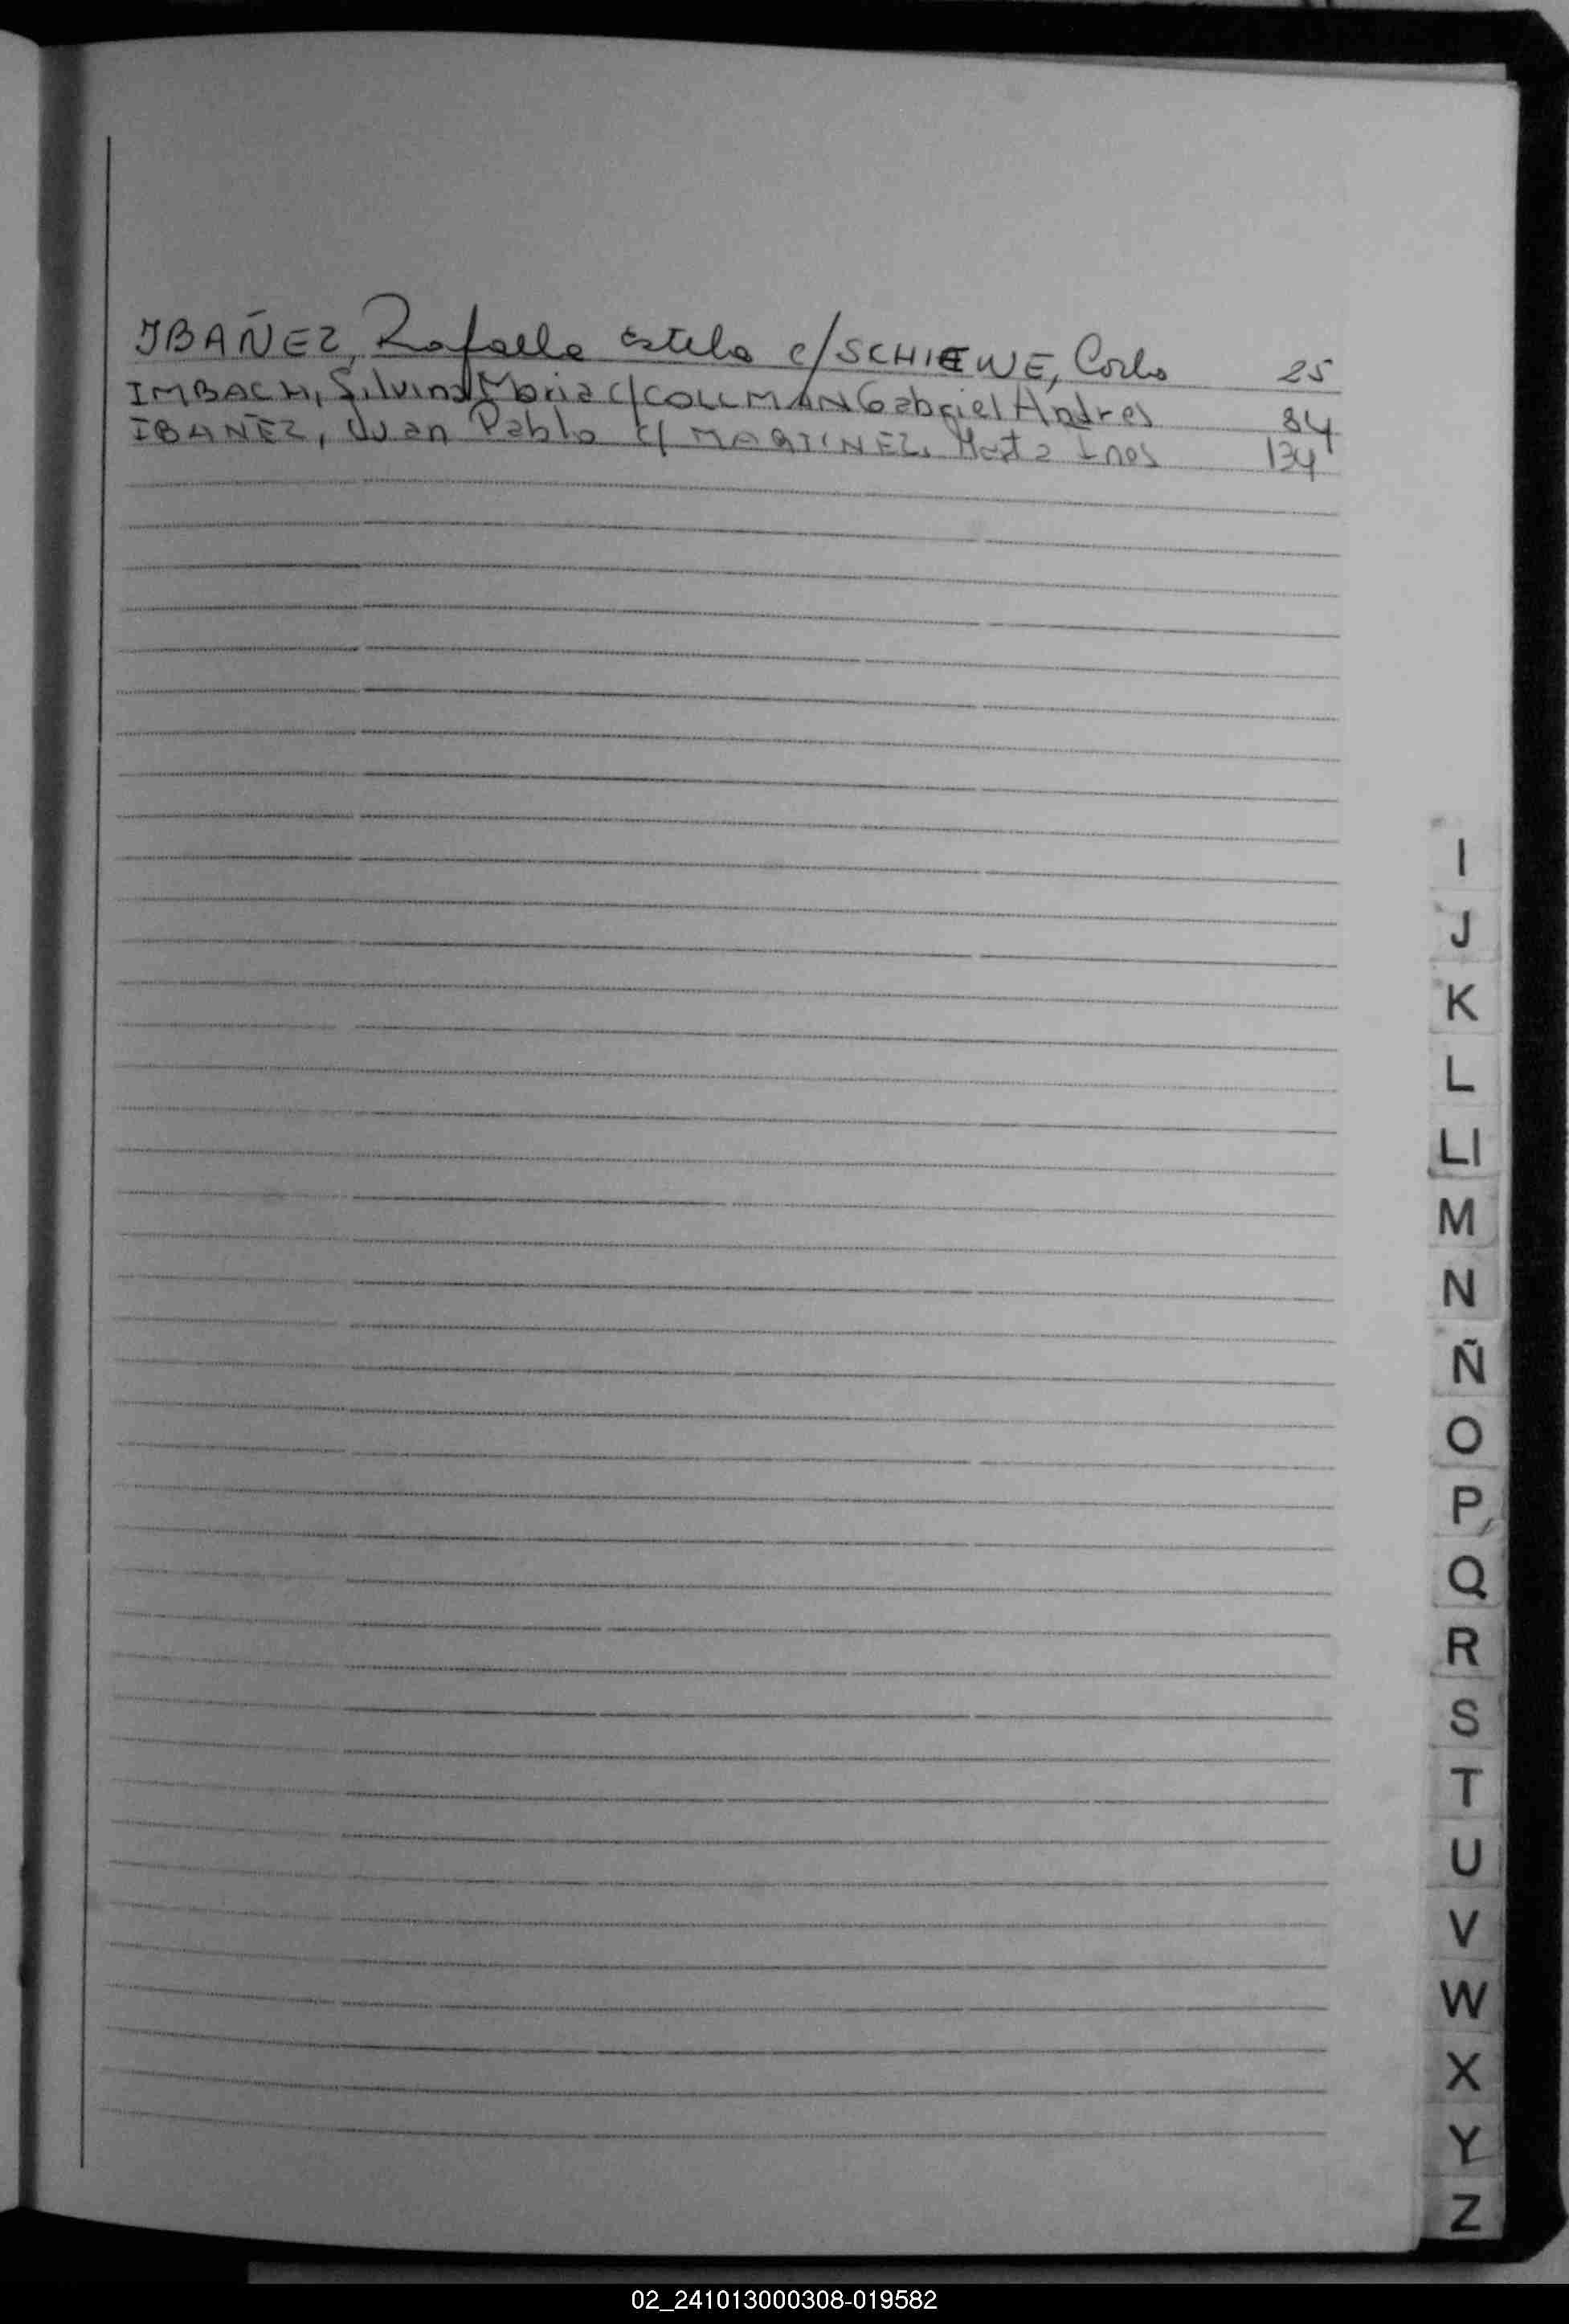 IBAÑEZ, Rafaella Estela c/SCHIEWE, Carlo 25
IMBACH, Silvina Maria c/COLLMAN Gabriel Andres 84
IBAÑEZ, Juan Pablo c/ MARTINEZ, Marta Ines 134
I
J
K
L
Ll
M
N
Ñ
O
P
Q
R
S
T
U
V
W
X
Y
Z
02_241013000308-019582